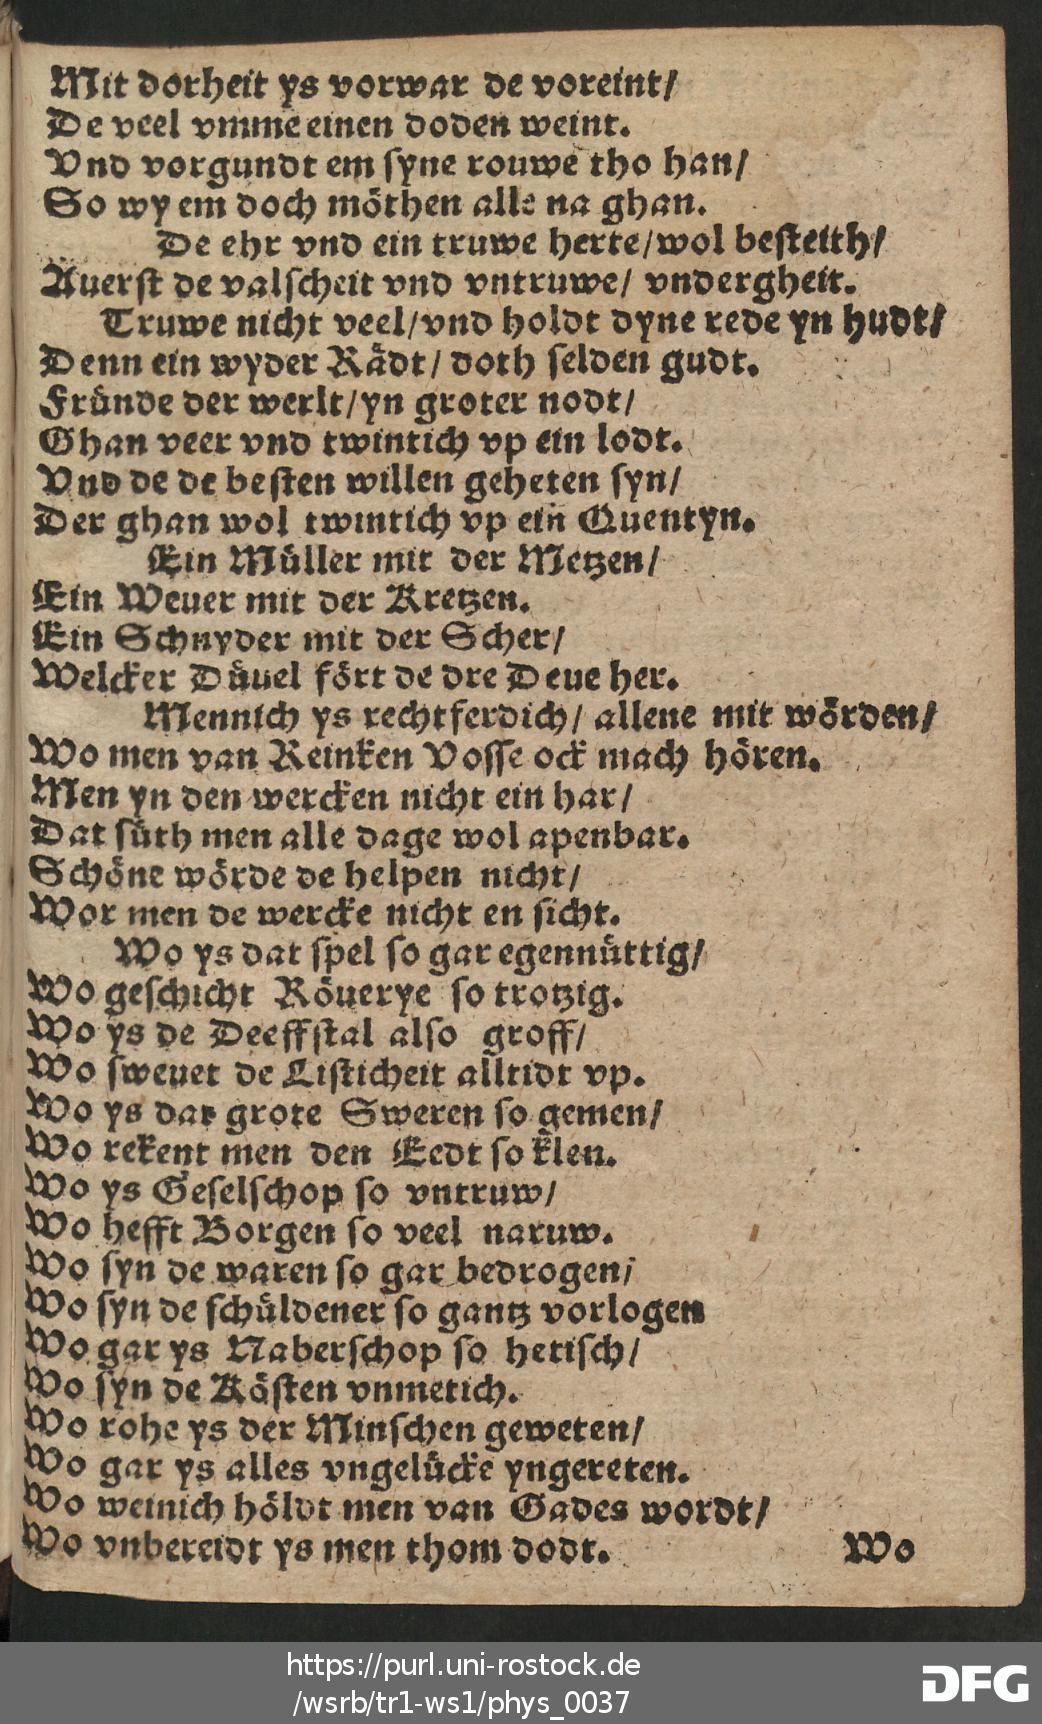 Mit dorheit ys vorwar de voreint/
De veel vmme einen doden weint.
Vnd vorgundt em syne rouwe tho han/
So wy em doch möthen alle na ghan.
De ehr vnd ein truwe herte/wol besteith/
Auerst de valscheit vnd vntruwe/ vndergheit.
Truwe nicht veel/vnd holdt dyne rede yn hudt/
Denn ein wyder Rädt/ doth selden gudt.
Fründe der werlt/yn groter nodt/
Ghan veer vnd twintich vp ein lodt.
Vnd de de besten willen geheten syn/
Der ghan wol twintich vp ein Quentyn.
Ein Müller mit der Metzen/
Ein Weuer mit der Kretzen.
Ein Schnyder mit der Scher/
Welcker Düuel fört de dre Deue her.
Mennich ys rechtferdich/ allene mit wörden/
Wo men van Reinken Vosse ock mach hören.
Men yn den wercken nicht ein har/
Dat süth men alle dage wol apenbar.
Schöne wörde de helpen nicht/
Wor men de wercke nicht en sicht.
Wo ys dat spel so gar egennüttig/
Wo geschicht Röuerye so trotzig.
Wo ys de Deeffstal also groff/
Wo sweuet de Listicheit alltidt vp.
Wo ys dat grote Sweren so gemen/
Wo rekent men den Eedt so klen.
Wo ys Geselschop so vntruw/
Wo hefft Borgen so veel naruw.
Wo syn de waren so gar bedrogen/
Wo syn de schüldener so gantz vorlogen
Wo gar ys Naberschop so hetisch/
Wo syn de Kösten vnmetich.
Wo rohe ys der Minschen geweten/
Wo gar ys alles vngelücke yngereten.
Wo weinich höldt men van Gades wordt/
Wo vnbereidt ys men thom dodt.
Wo
https://purl.uni-rostock.de
/wsrb/tr1-ws1/phys_0037
DFG